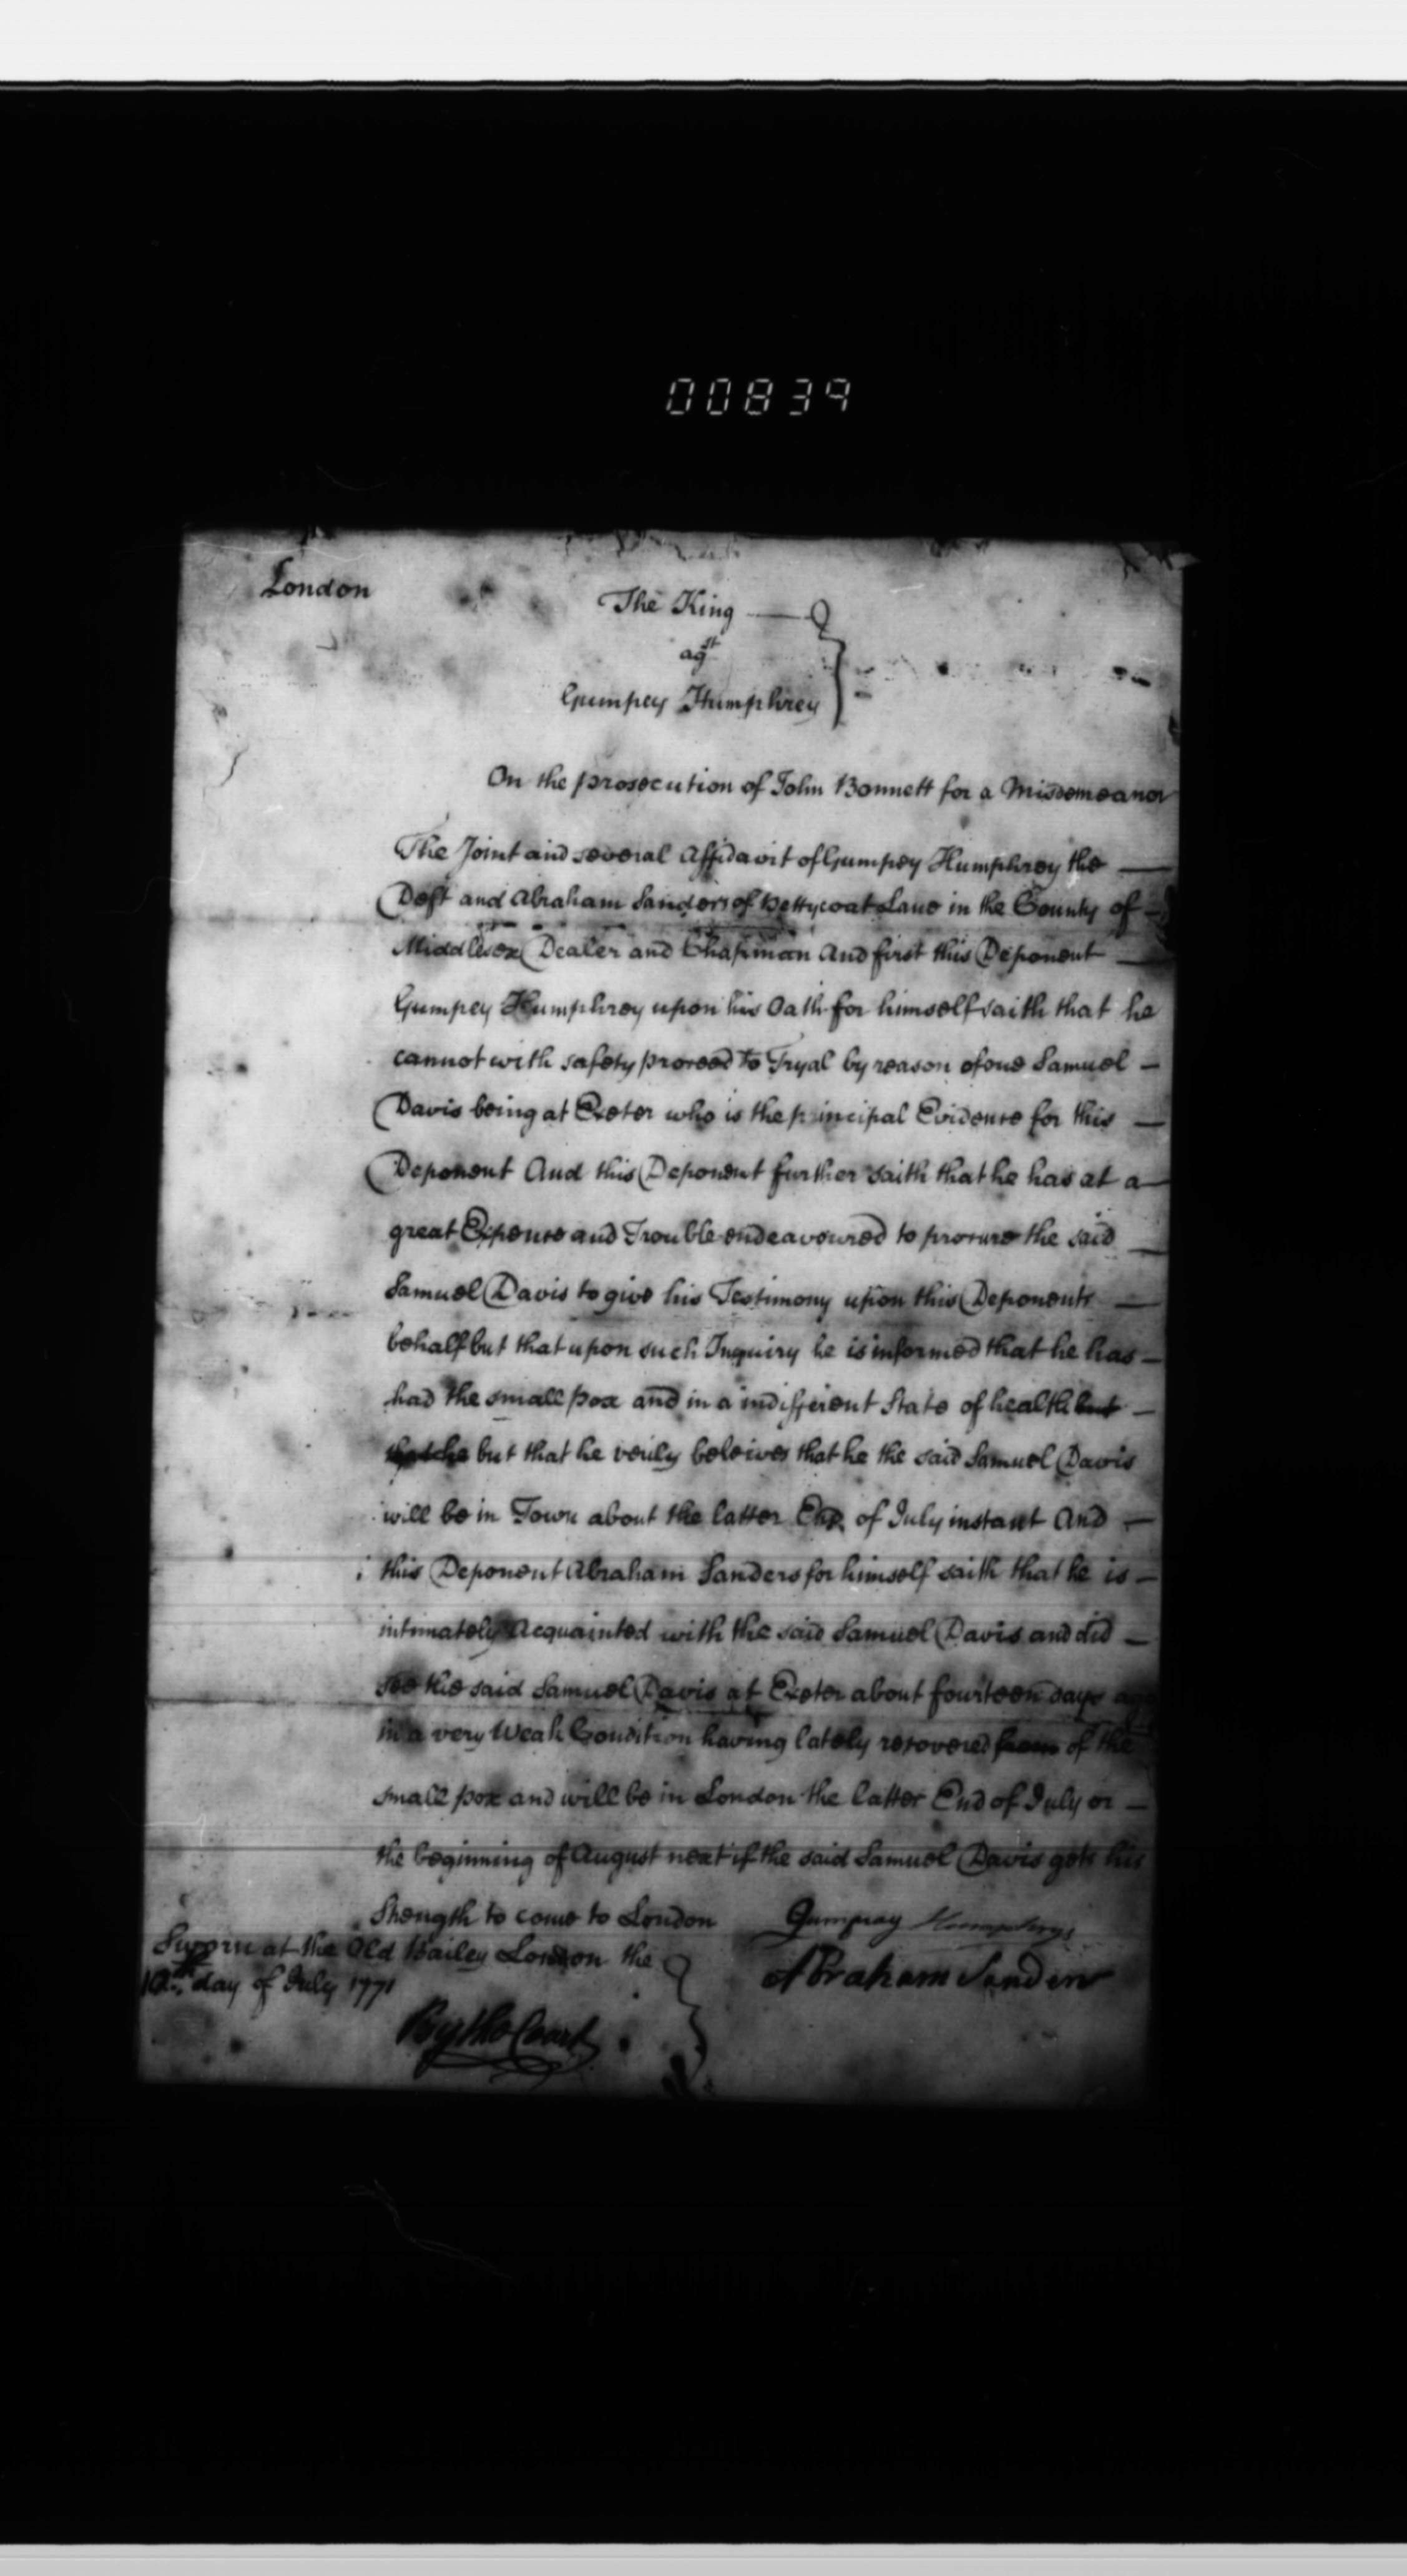 00839
London
The King
agst
Gumpey Humphrey
On the prosecution of John Bonnett for a Misdemeanor
The Joint and several Affidavit of Gumpey Humphrey the
Deft and Abraham Sanders of Pettycoat Lane in the County of
Middlesex Dealer and Chapman And first this Deponent
Gumpey Humphrey upon his Oath for himself saith that he
cannot with safety proceed to Tryal by reason of one Samuel
Davis being at Exeter who is the principal Evidence for this
Deponent And this Deponent further saith that he has at a
great Expence and Trouble endeavoured to procure the said
Samuel Davis to give his Testimony upon this Deponents
behalf but that upon such Inquiry he is informed that he has
had the small pox and in a indifferent State of health but
that he but that he verily beleives that he the said Samuel Davis
will be in Town about the latter End of July instant And
this Deponent Abraham Sanders for himself saith that he is
intimately Acquainted with the said Samuel Davis and did
see the said Samuel Davis at Exeter about fourteen days ago
in a very Weak Condition having lately recovered from of the
small pox and will be in London the latter End of July or
the beginning of August next if the said Samuel Davis gets his
Strength to come to London
Gumpray Humphrys
Sworn at the Old Bailey London the
10th. day of July 1771
Abraham Sanders
By the Court